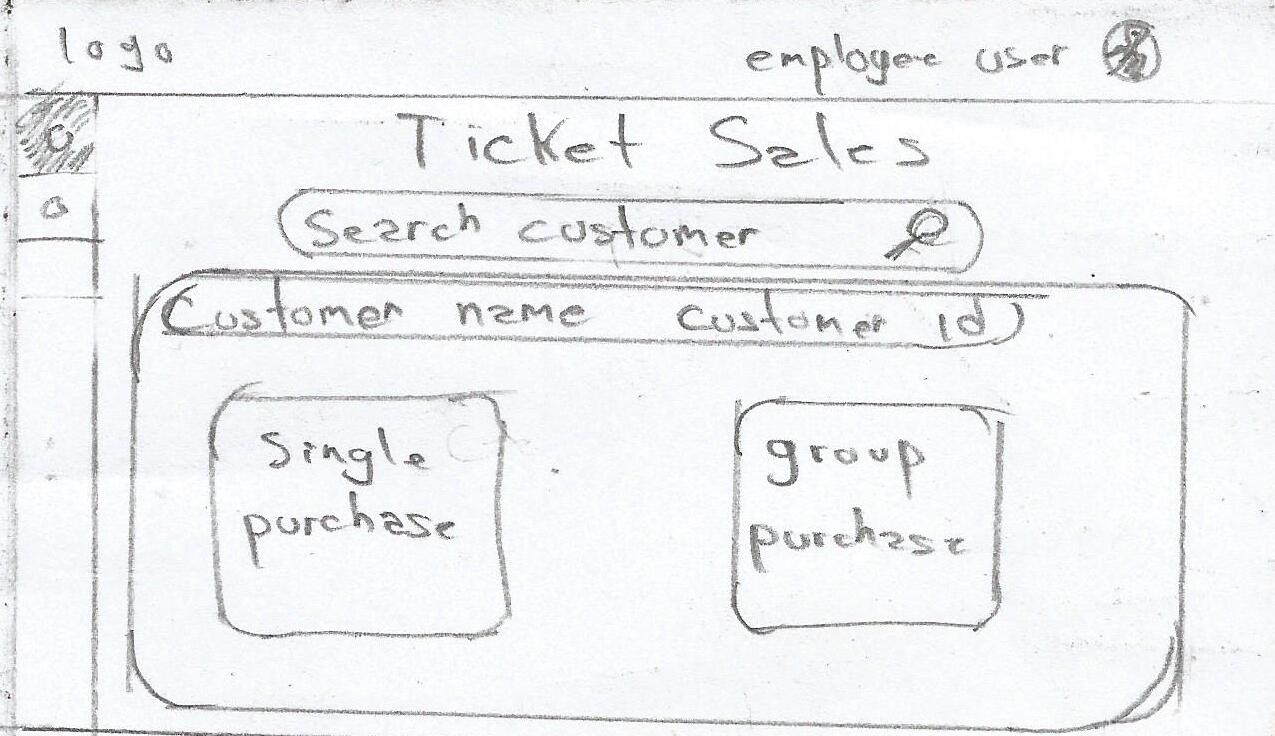 logo employee user
Ticket Sales
Search customer
Customer name customer id
Single
purchase
group
purchase